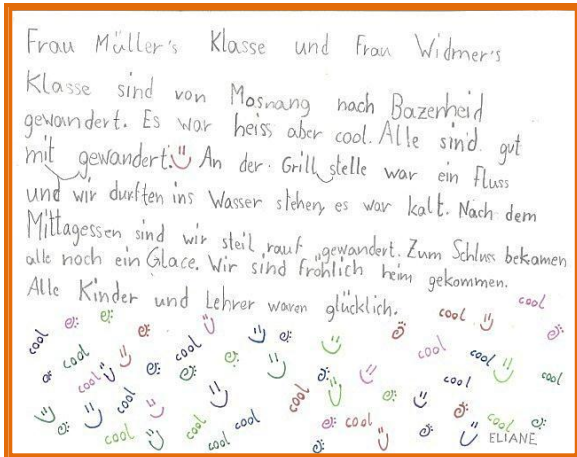 Frau Müller's Klasse und Frau Widmer's
Klasse sind von Mosnang nach Bazenheid
gewandert. Es war heiss aber cool. Alle sind gut
mit gewandert. An der Grillstelle war ein Fluss
und wir durften ins Wasser stehen, es war kalt. Nach dem
Mittagessen sind wir steil rauf gewandert. Zum Schluss bekamen
alle noch ein Glace. Wir sind fröhlich heim gekommen.
Alle Kinder und Lehrer waren glücklich.
cool
cool
cool cool
cool cool cool
cool cool cool
cool cool cool
cool cool cool
cool cool
ELIANE